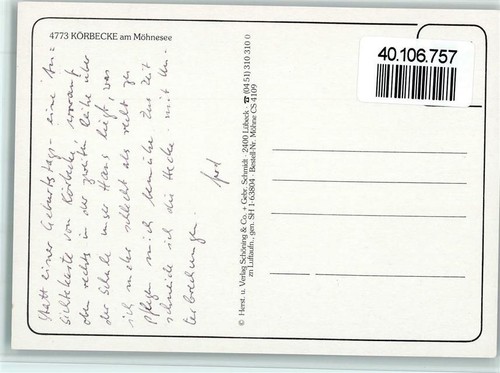 4773 KÖRBECKE am Möhnesee
40.106.757
Statt einer Geburtstags- eine An-
sichtskarte von Körbecke, worauf
oben rechts in der zweiten Reihe über
der Schule unser Haus liegt, was
ich mehr schlecht als recht zu
pflegen mich bemühe. Zur Zeit
schneide ich die Hecke - mit Un-
terbrechungen.
© Herst. u. Verlag Schöning & Co. + Gebr. Schmidt · 2400 Lübeck · ☎ (04 51) 310 310 0
zn Luftaufn., gen. SH 1-63804 · Bestell-Nr. Möhne CS 4109